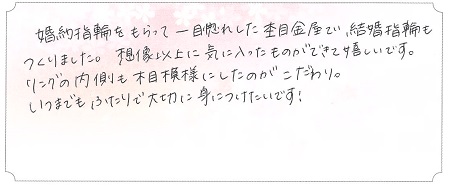 婚約指輪をもらって一目惚れした杢目金屋で、結婚指輪も
つくりました。想像以上に気に入ったものができて嬉しいです。
リングの内側も木目模様にしたのがこだわり。
いつまでもふたりで大切に身につけたいです!